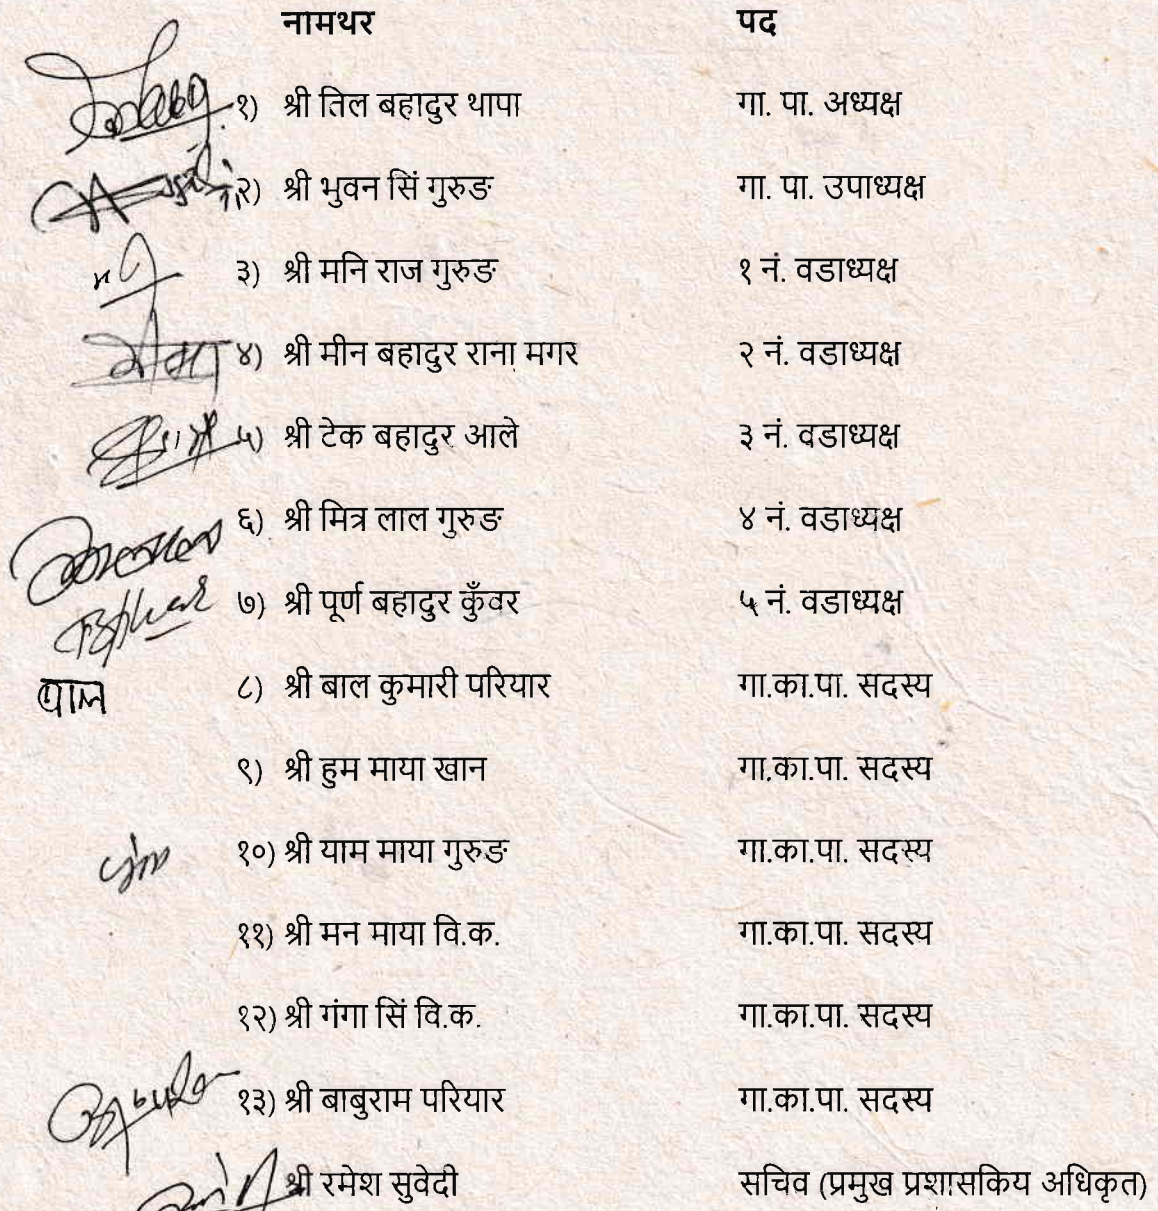 नामथर पद
१) श्री तिल बहादुर थापा गा. पा. अध्यक्ष
२) श्री भुवन सिं गुरुङ गा. पा. उपाध्यक्ष
३) श्री मनि राज गुरुङ १ नं. वडाध्यक्ष
४) श्री मीन बहादुर राना मगर २ नं. वडाध्यक्ष
५) श्री टेक बहादुर आले ३ नं. वडाध्यक्ष
६) श्री मित्र लाल गुरुङ ४ नं. वडाध्यक्ष
७) श्री पूर्ण बहादुर कुँवर ५ नं. वडाध्यक्ष
बाल ८) श्री बाल कुमारी परियार गा.का.पा. सदस्य
९) श्री हुम माया खान गा.का.पा. सदस्य
१०) श्री याम माया गुरुङ गा.का.पा. सदस्य
११) श्री मन माया वि.क. गा.का.पा. सदस्य
१२) श्री गंगा सिं वि.क. गा.का.पा. सदस्य
१३) श्री बाबुराम परियार गा.का.पा. सदस्य
श्री रमेश सुवेदी सचिव (प्रमुख प्रशासकिय अधिकृत)